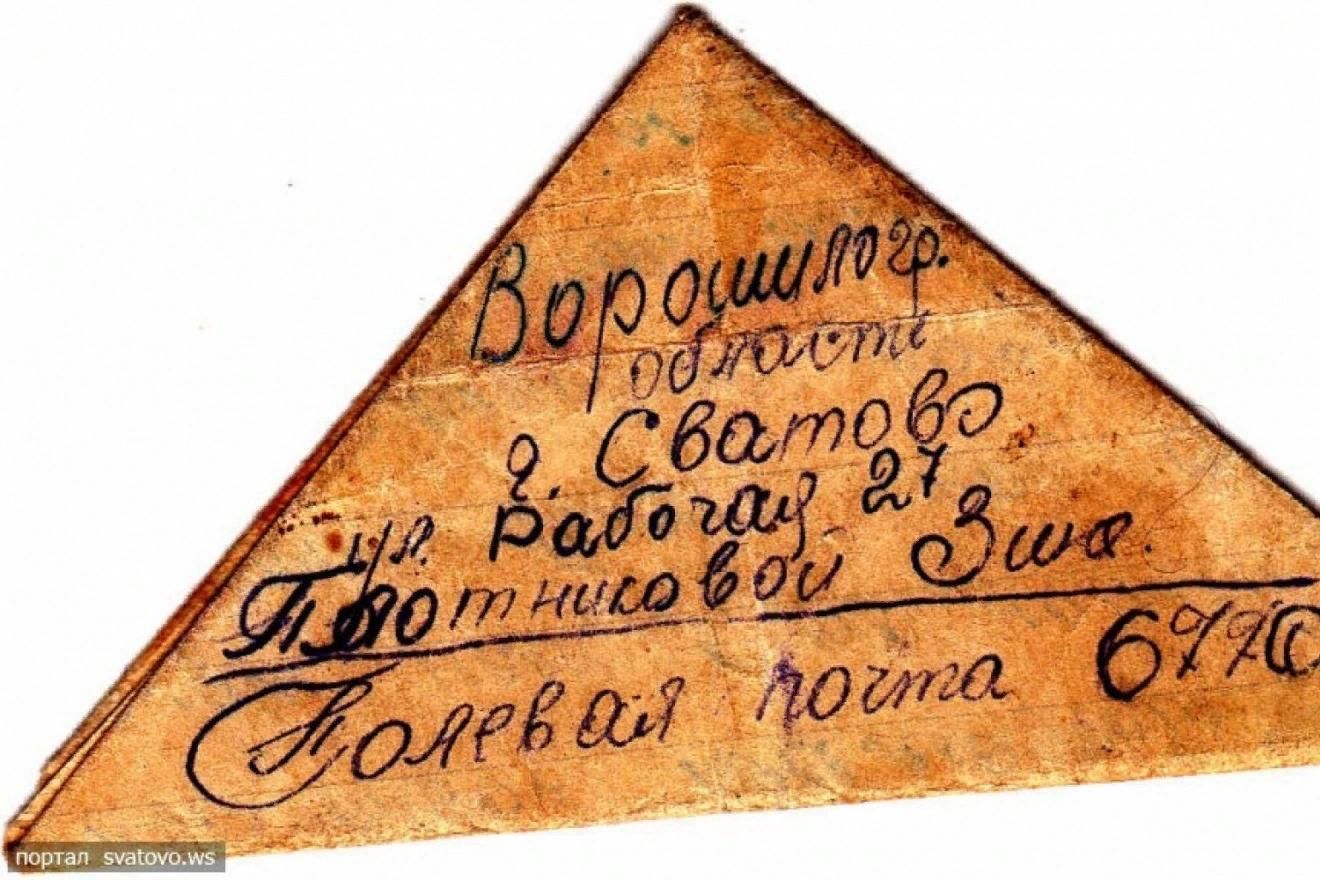 Ворошилогр.
область
г. Сватово
ул. Рабочая 27
Плотниковой Зин.
Полевая почта
портал svatovo.ws